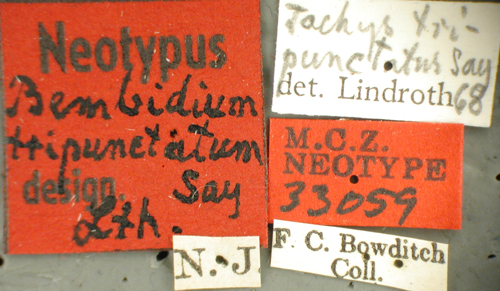 Neotypus
Bembidium
tripunctatum
design. Say
Lth.
Tachys tri-
punctatus Say
det. Lindroth 68
M.C.Z.
NEOTYPE
33059
N.J.
F. C. Bowditch
Coll.